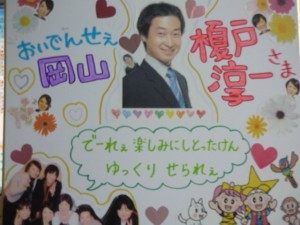 おいでんせぇ
岡山
榎戸
淳一さま
でーれぇ楽しみにしとったけん
ゆっくり せられぇ